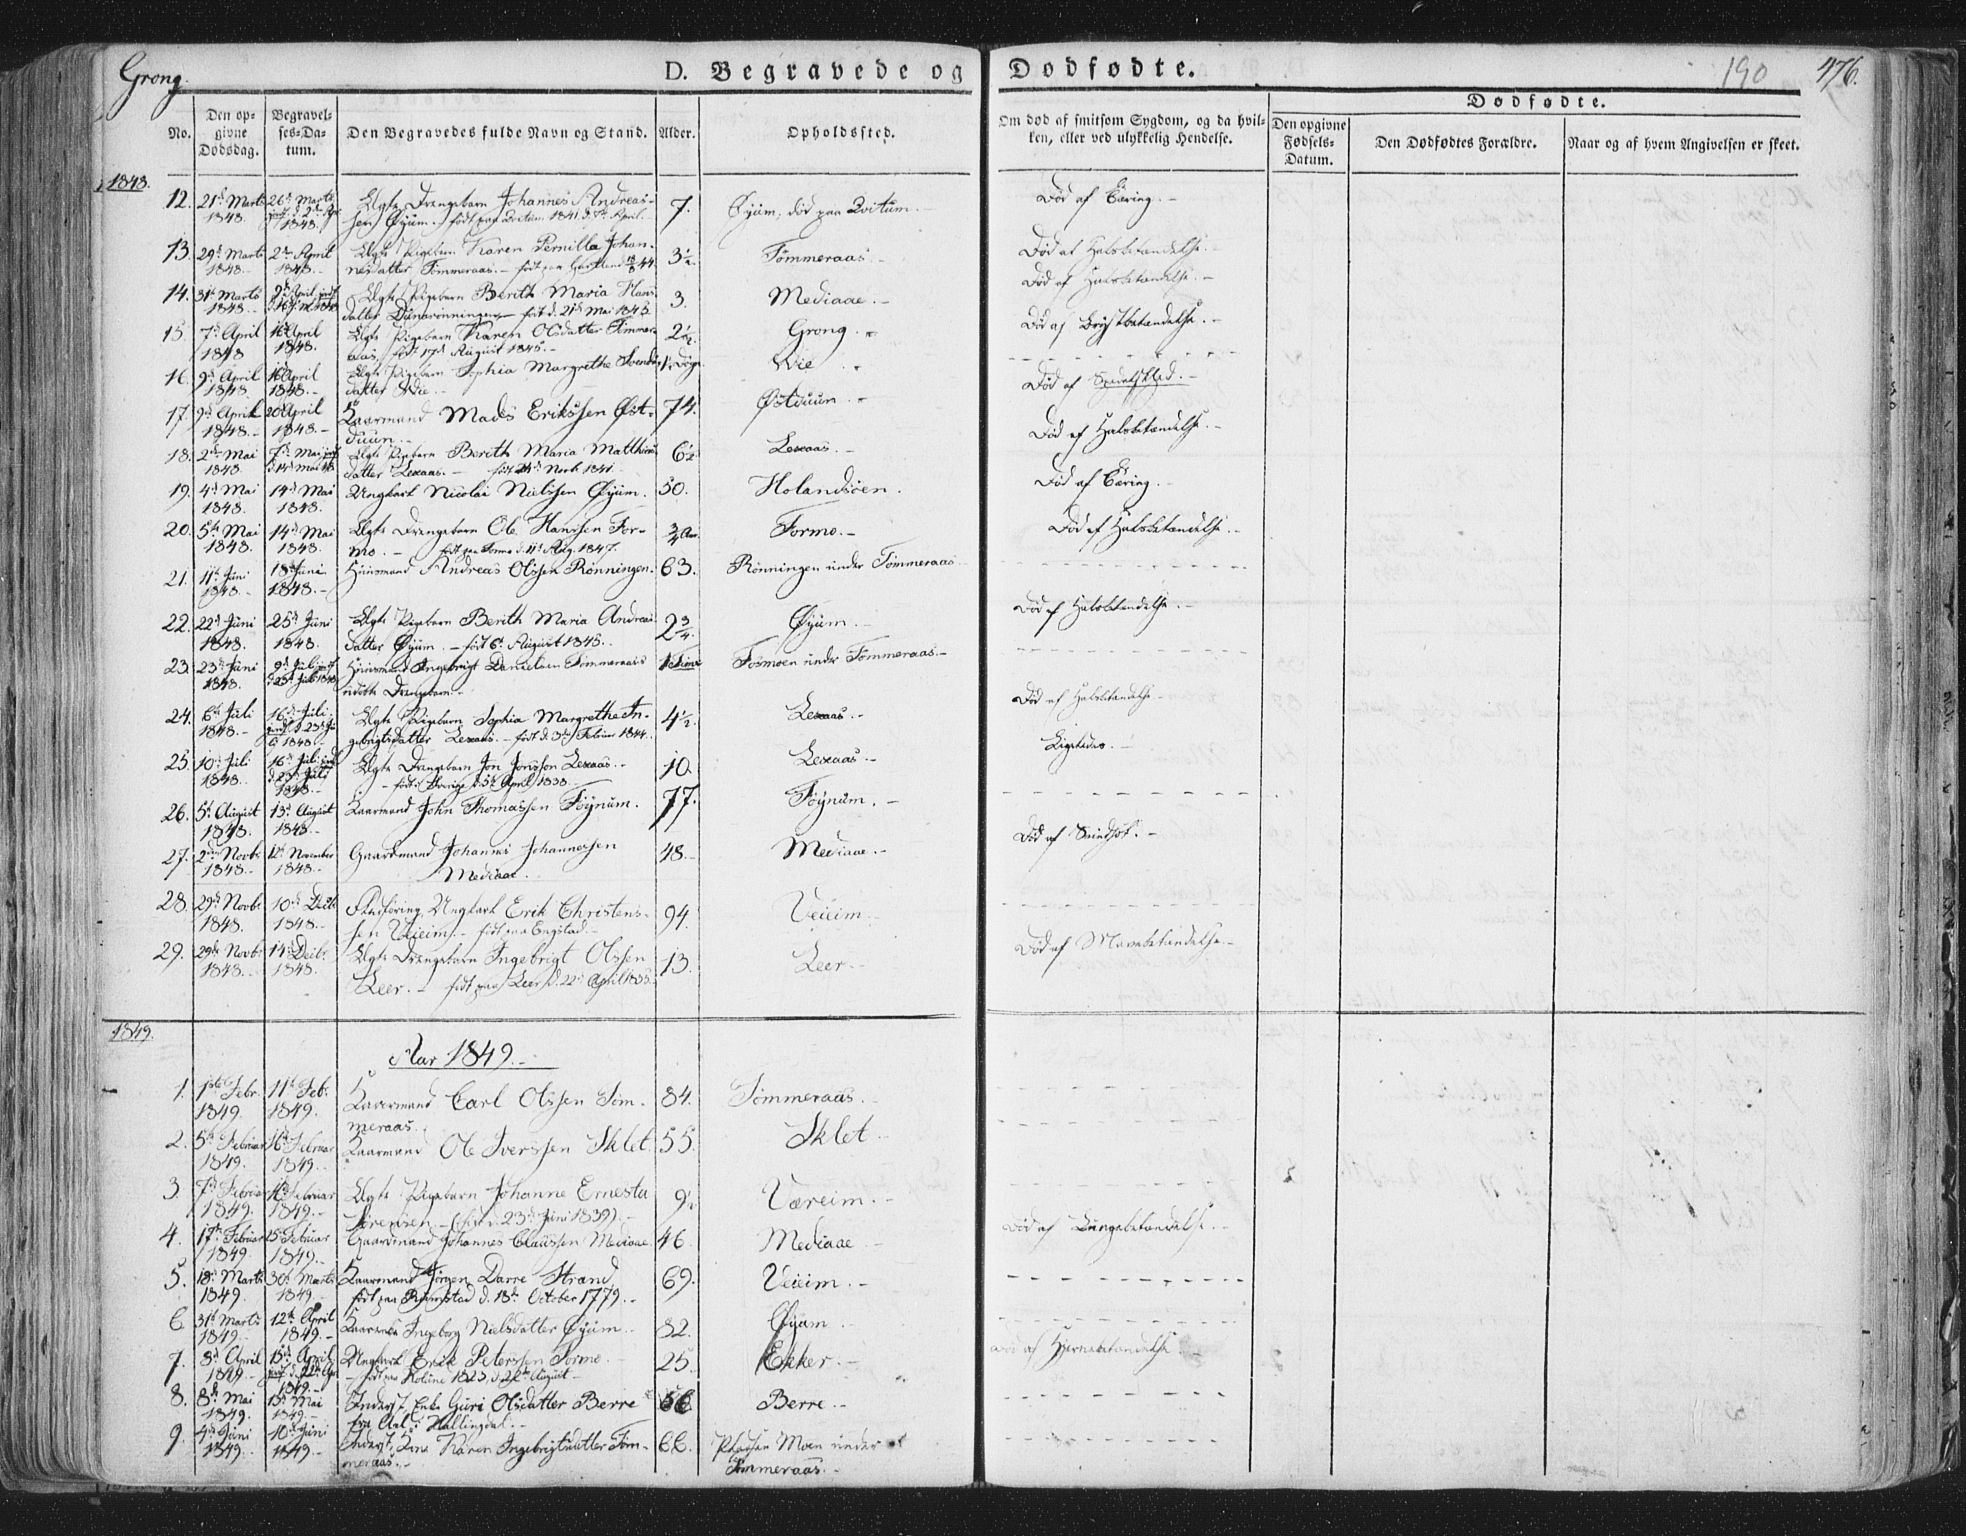 Grong.
D. Begravede og Dødfødte.
190 476.
No.
Den opgivne Dødsdag.
Begravelses-Datum.
Den Begravedes fulde Navn og Stand.
Alder.
Opholdssted.
Om død af smitsom Sygdom, og da hvilken, eller ved ulykkelig Hendelse.
Dødfødte.
Den opgivne Fødsels-Datum.
Den Dødfødtes Forældre.
Naar og af hvem Angivelsen er skeet.
1848.
12. 21de Marts 1848. 26de Marts 1848. Ægte Drengebarn Johannes Andreassen Øyum. 7. Øyum, død paa Død af Tæring.
13. 29de Marts 1848. 2den April 1848. Ægte Pigebarn Karen Pernilla Johannesdatter Tømmeraas. 3½. Tømmeraas. Død af Halsbetændelse.
14. 31te Marts 1848. 9de April Ægte Pigebarn Berith Maria Hansdatter født d. 21de Mai 1845. 3. Mediaae. Død af Halsbetændelse.
15. 7de April 1848 16de April 1848. Ægte Pigebarn Karen Olsdatter Tømmeraas, født 17de August 1845. 2½. Grong. Død af Brystbetændelse.
16. 9de April 1848. 16de April 1848. Ægte Pigebarn Sophia Margrethe Svendsdatter Wie. Wie. - - -
17. 9de April 1848. 20de April 1848. Kaarmand Mads Erikssen Østduun. 74. Østduun. Død af
18. 2den Mai 1848. 7de Mai Ægte Pigebarn Berith Maria Matthiasdatter Lexaas. født Novb. 1841. 6½ Lexaas. Død af Halsbetændelse.
19. 4de Mai 1848. 14de Mai 1848. Ungkarl Nicolai Nielssen Øyum. 50. Holandsøen. Død af Tæring.
20. 5te Mai 1848. 14de Mai 1848. Ægte Drengebarn Ole Hanssen Formo. født paa Formo d. 11te Aug. 1847. ¾ Aar Formo. Død af Halsbetændelse.
21. 11te Juni 1848. 18de Juni 1848. Huusmand Andreas Olssen Rønningen. 63. Rønningen under Tømmeraas - - -
22. 22de Juni 1848. 25de Juni 1848. Ægte Pigebarn Berith Maria Andreasdatter Øyum. født 6te August 1845. 2¾. Øyum. Død af Halsbetændelse.
23. 23de Juni 1848. 9de Juli Huusmand Ingebrigt Danielsen Tømmeraas's udøbte Drengebarn. 1 Time Fosmoen under Tømmeraas. - - -
24. 6te Juli 1848. 16de Juli 1848. Ægte Pigebarn Sophia Margrethe Ingebrigtsdatter Lexaas. født d. 3die Februar 1844. 4½. Lexaas. Død af Halsbetændelse
25. 10de Juli 1848. 16de Juli 1848. Ægte Drengebarn Jon Jonsson Lexaas. født i Sverige d. 5te April 1838. 10. Lexaas. Ligeledes.
26. 5te August 1848. 13de August 1848. Kaarmand John Thomassen Føynum. 77. Føynum. - - -
27. 2den Novbr. 1848. 12te November 1848. Gaardmand Johannes Johannessen Mediaae. 48. Mediaae. Død af
28. 29de Novbr. 1848. 10de Decbr. 1848. Ungkarl Erik Christenssen Veieim. født paa Engstad. 94. Veieim. - - -
29. 29de Novbr. 1848. 14de Decbr. 1848. Ægte Drengebarn Ingebrigt Olssen Leer. født paa Leer d. 22de April 1835. 13. Leer. Død af Mavebetændelse.
1849.
Aar 1849.
1. 1ste Febr. 1849. 11te Feb. 1849. Kaarmand Carl Olssen Tømmeraas. 84. Tømmeraas. - - -
2. 5te Februar 1849. 16de Februar 1849. Kaarmand Ole Iverssen Sklet. 55. Sklet. - - -
3. 7de Februar 1849. Februar 1849. Ægte Pigebarn Johanne Ernesta Sørensen. (født d. 23de Juni 1839). 9½ Væreim. - - -
4. 17de Februar 1849. 25de Februar 1849. Gaardmand Johannes Claussen Mediaae. 46. Mediaae. Død af Lungebetændelse.
5. 18de Marts 1849. 30te Marts 1849. Kaarmand Jørgen Darre Strand født paa d. 18de October 1779. 69. Veieim. - - -
6. 31te Marts 1849. 12te April 1849. Ingeborg Nielsdatter Øyum. 82. Øyum. - - -
7. 8de April 1849 15de April 1849. Ungkarl Erik Peterssen Formo. 25. Ekker. Død af Hjernebetændelse.
8. 8de Mai 1849. 13de Mai 1849. Inderst, Enke Guri Olsdatter Berre fra Aal i Hallingdal. Berre. - - -
9. 4de Juni 1849. 10de Juni 1849. Inderst, Karen Ingebrigtsdatter Tømmeraas. 66. Moen under Tømmeraas. - - -